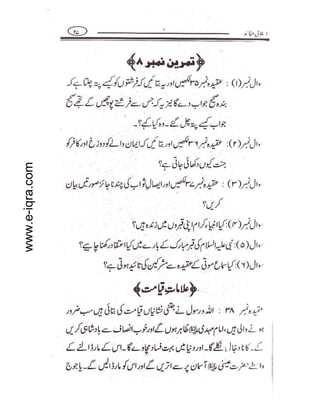 اسلامی عقائد
۴۷
تمرین نمبر ۸
سوال نمبر (۱) : عقیدہ نمبر ۳۵ لکھیں اور یہ بتائیں کہ فرشتوں کو کیسے پتہ چلتا ہے کہ
بندہ صحیح جواب دے گا نیز یہ کہ جس سے فرشتے پوچھیں گے تجھے صحیح
جواب کیسے پتہ چل گئے۔ وہ کیا کہے گا؟
سوال نمبر (۲) : عقیدہ نمبر ۳۶ لکھیں اور بتائیں کہ ایمان والے کو دوزخ اور کافر کو
جنت کیوں دکھائی جاتی ہے؟
سوال نمبر (۳) : عقیدہ نمبر ۳۷ لکھیں اور ایصال ثواب کی چند ناجائز صورتیں بیان
کریں؟
سوال نمبر (۴) : کیا انبیاء کرام اپنی قبروں میں زندہ ہیں؟
سوال نمبر (۵) : نبی علیہ السلام کی قبر مبارک کے بارے میں کیا اعتقاد رکھنا چاہیے؟
سوال نمبر (۶) : کیا سماع موتی کے عقیدہ سے مشرکین کی تائید ہوتی ہے؟
علامات قیامت
عقیدہ نمبر ۳۸ : اللہ و رسول نے جتنی نشانیاں قیامت کی بتائی ہیں سب ضرور
ہونے والی ہیں، امام مہدی ظاہر ہوں گے اور خوب انصاف سے بادشاہی کریں
گے۔ کانا دجال نکلے گا۔ اور دنیا میں بہت فساد مچاوے گا۔ اس کے مار ڈالنے کے
واسطے حضرت عیسیٰ آسمان پر سے اتریں گے اور اس کو مار ڈالیں گے۔ یاجوج
www.e-iqra.com